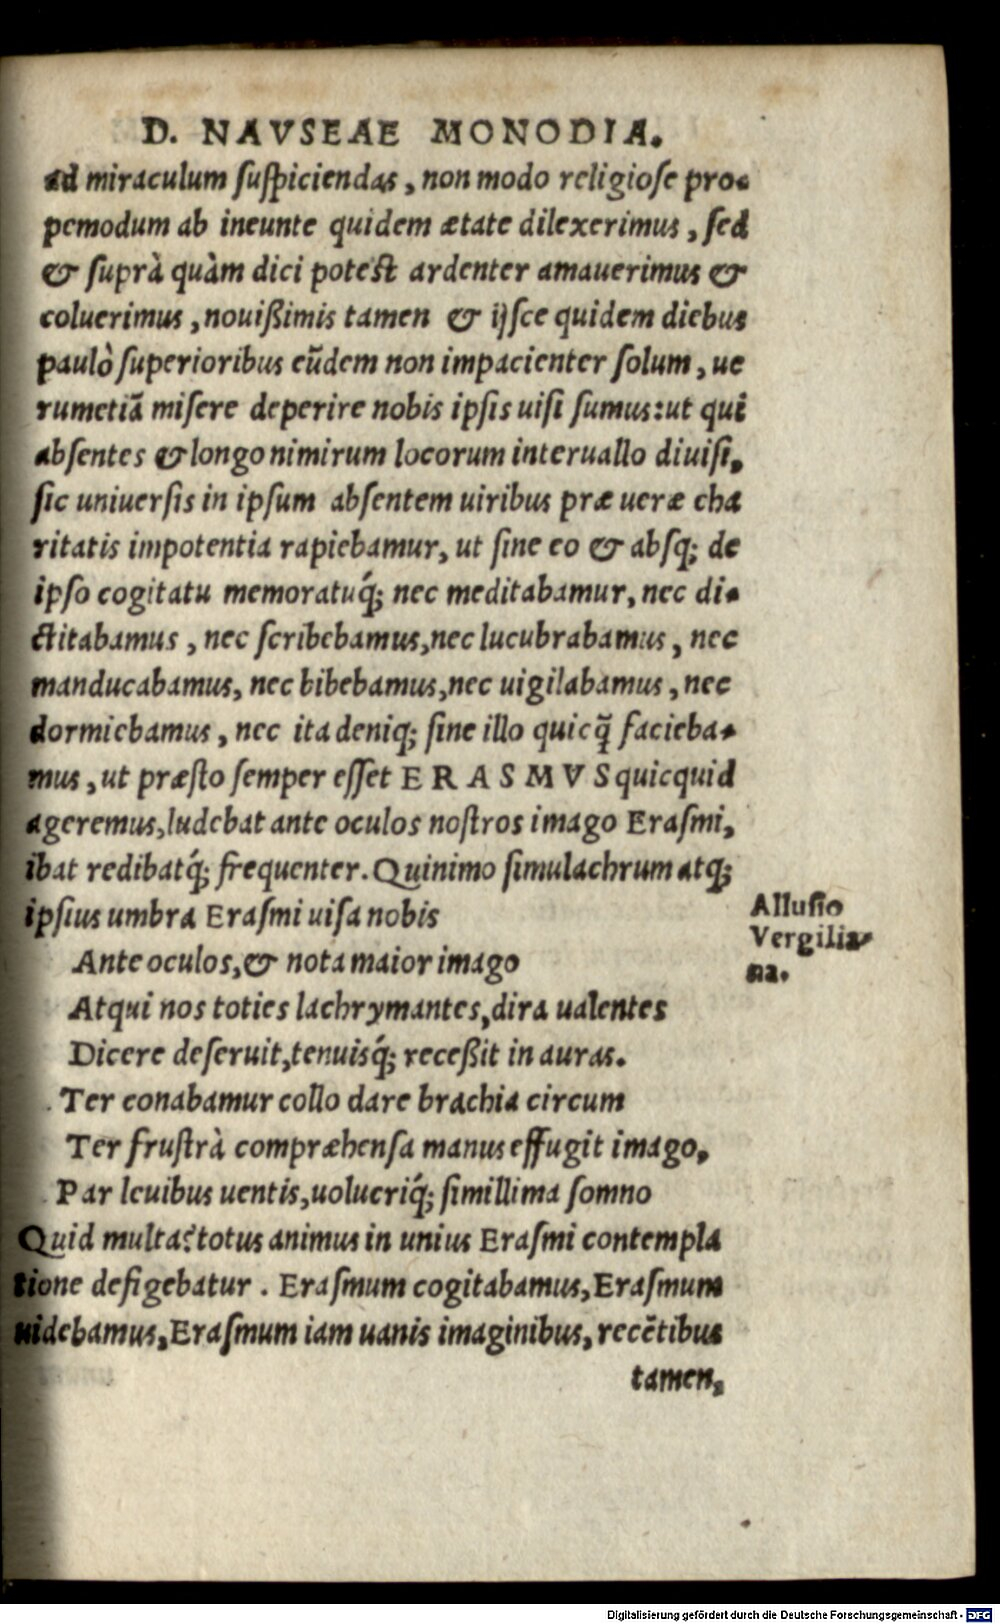 D. NAVSEAE MONODIA.
ad miraculum suspiciendas, non modo religiose pro-
pemodum ab ineunte quidem ætate dilexerimus, sed
& suprà quàm dici potest ardenter amauerimus &
coluerimus, nouißimis tamen & ijsce quidem diebus
paulò superioribus eũdem non impacienter solum, ue
rumetiã misere deperire nobis ipsis uisi sumus: ut qui
absentes & longo nimirum locorum interuallo diuisi,
sic uniuersis in ipsum absentem uiribus præ ueræ cha
ritatis impotentia rapiebamur, ut sine eo & absq; de
ipso cogitatu memoratuq́; nec meditabamur, nec di-
ctitabamus, nec scribebamus, nec lucubrabamus, nec
manducabamus, nec bibebamus, nec uigilabamus, nec
dormiebamus, nec ita deniq; sine illo quicq̃ facieba-
mus, ut præsto semper esset ERASMVS quicquid
ageremus, ludebat ante oculos nostros imago Erasmi,
ibat redibatq́; frequenter. Quinimo simulachrum atq;
ipsius umbra Erasmi uisa nobis
Allusio
Vergilia-
na.
Ante oculos, & nota maior imago
Atqui nos toties lachrymantes, dira ualentes
Dicere deseruit, tenuisq́; receßit in auras.
Ter conabamur collo dare brachia circum
Ter frustrà compræhensa manus effugit imago,
Par leuibus uentis, uolucriq́; simillima somno
Quid multa? totus animus in unius Erasmi contempla
tione defigebatur. Erasmum cogitabamus, Erasmum
uidebamus, Erasmum iam uanis imaginibus, recẽtibus
tamen,
Digitalisierung gefördert durch die Deutsche Forschungsgemeinschaft - DFG